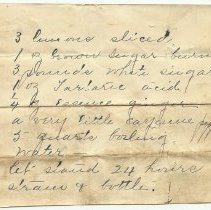 3 lemons sliced
1 oz brown sugar burn
3 pounds white sugar
1 oz Tartaric acid
4 essence ginger
a very little cayenne
5 quarts boiling
water
let stand 24 hours
strain & bottle.